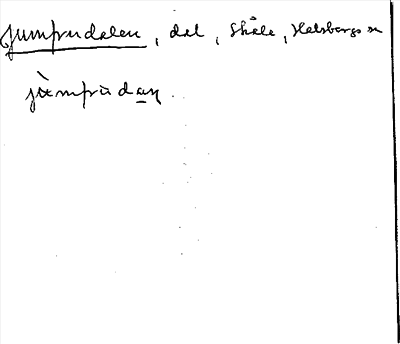 Jumfrudalen, dal, Skåle, Halsbergs sn
jùmfrùdaṉ.